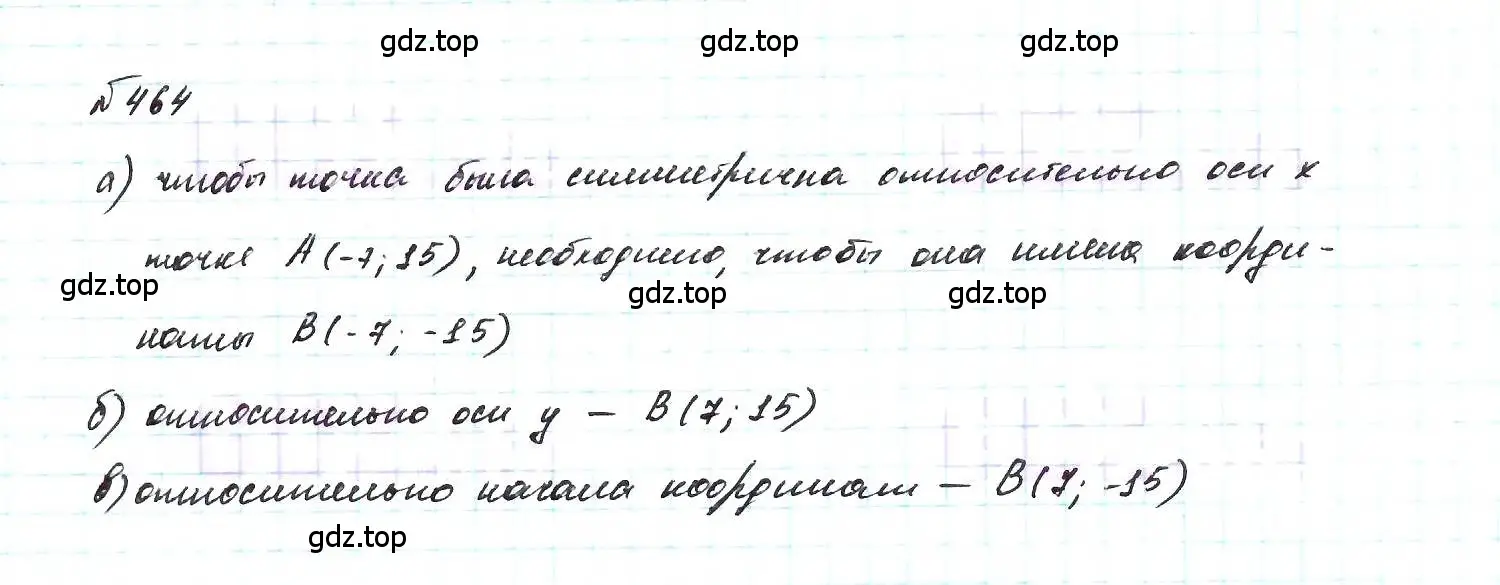 gdz.top gdz.top gdz.top
№ 464
а) чтобы точка была симметрична относительно оси x
точке A(-7; 15), необходимо, чтобы она имела коорди-
gdz.top gdz.top gdz.top
наты B(-7; -15)
б) относительно оси y – B(7; 15)
в) относительно начала координат – B(7; -15)
gdz.top